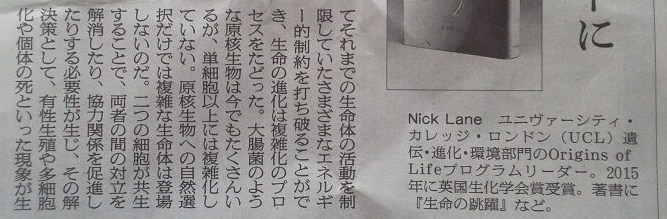 に
てそれまでの生命体の活動を制
限していたさまざまなエネルギ
ー的制約を打ち破ることがで
き、生命の進化は複雑化のプロ
セスをたどった。大腸菌のよう
な原核生物は今でもたくさんい
るが、単細胞以上には複雑化し
ていない。原核生物への自然選
択だけでは複雑な生命は登場
しないのだ。二つの細胞が共生
することで、両者の間の対立を
解消したり、協力関係を促進し
たりする必要性が生じ、その解
決策として、有性生殖や多細胞
化や個体の死といった現象が生
Nick Lane ユニヴァーシティ・
カレッジ・ロンドン（UCL）遺
伝・進化・環境部門のOrigins of
Lifeプログラムリーダー。2015
年に英国生化学会賞受賞。著書に
『生命の跳躍』など。